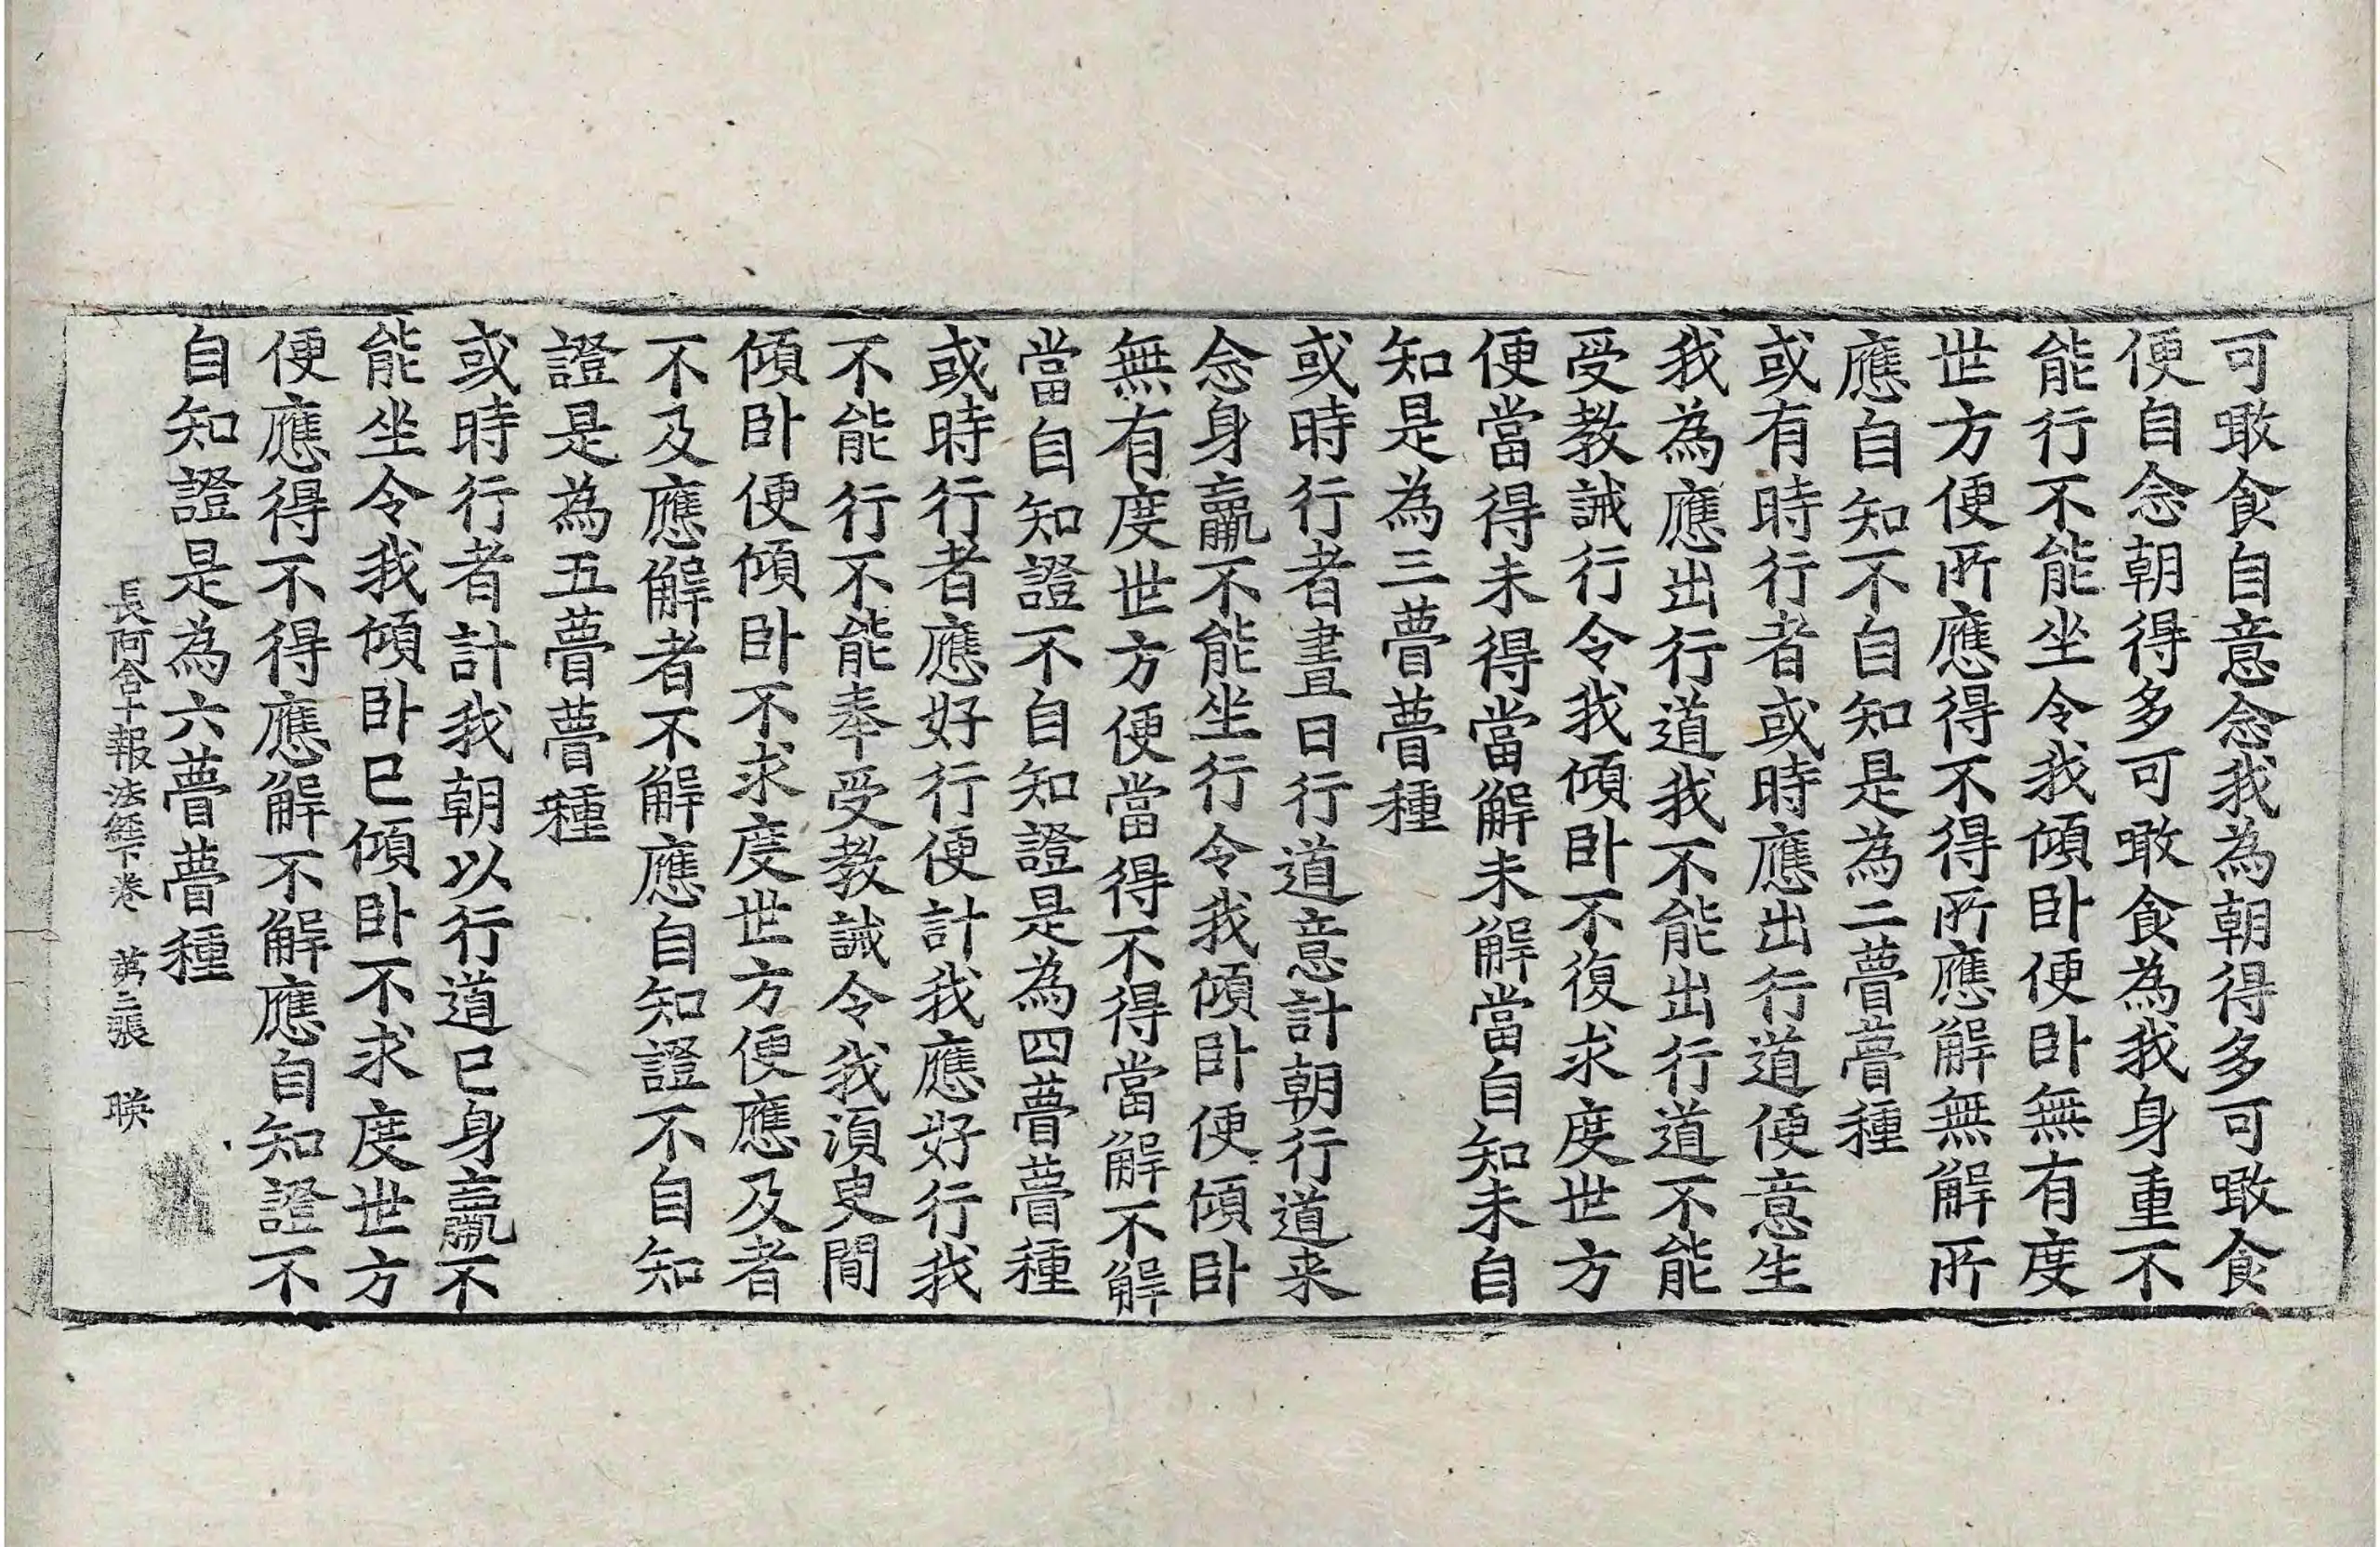 可噉食自意念我為朝得多可噉食
便自念朝得多可噉食為我身重不
能行不能坐令我傾卧便卧無有度
世方便所應得不得所應解無解所
應自知不自知是為二瞢瞢種
或有時行者或時應出行道便意生
我為應出行道我不能出行道不能
受教誡行令我傾卧不復求度世方
便當得未得當解未解當自知未自
知是為三瞢瞢種
或時行者晝日行道意計朝行道来
念身羸不能坐行令我傾卧便傾卧
無有度世方便當得不得當解不解
當自知證不自知證是為四瞢瞢種
或時行者應好行便計我應好行我
不能行不能奉受教誡令我湏臾間
傾卧便傾卧不求度世方便應及者
不及應解者不解應自知證不自知
證是為五瞢瞢種
或時行者計我朝以行道已身羸不
能坐令我傾卧已傾卧不求度世方
便應得不得應解不解應自知證不
自知證是為六瞢瞢種
長阿含十報法經下卷 苐二張 䁐